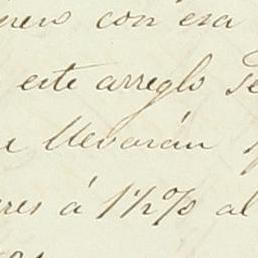 con esa
este arreglo se
llevarán
res á 1½% al